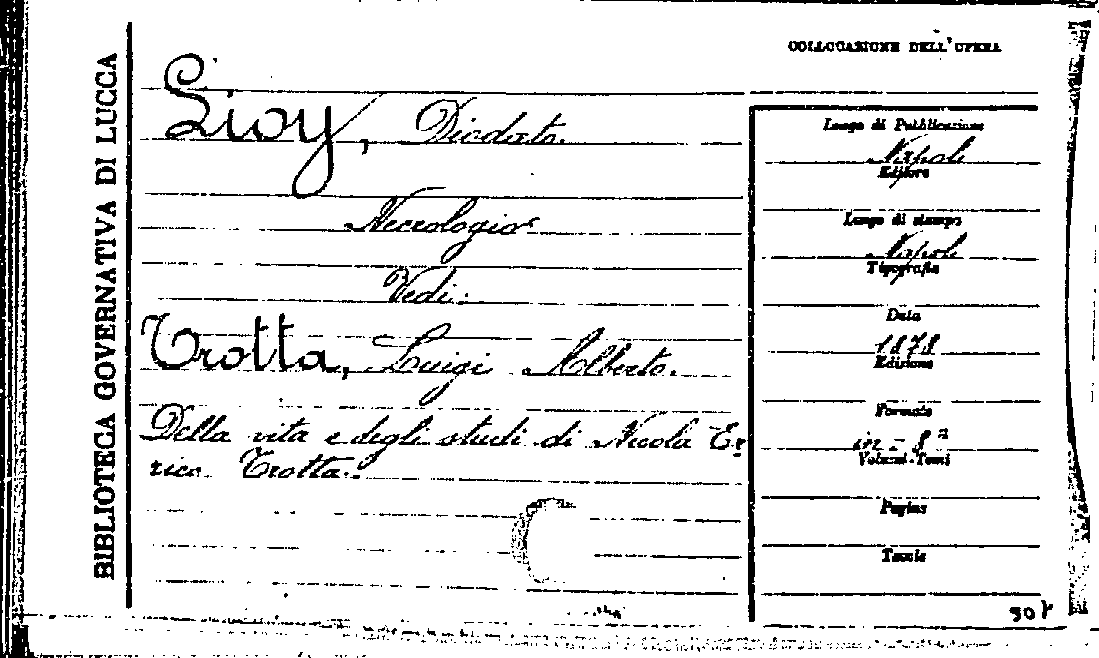 BIBLIOTECA GOVERNATIVA DI LUCCA
COLLOCAZIONE DELL'OPERA
Lioy, Diodato.
Necrologio
Vedi:
Trotta, Luigi Alberto.
Della vita e degli studi di Nicola En
rico Trotta.
Luogo di Pubblicazione
Napoli
Editore
Luogo di stampa
Napoli
Tipografia
Data
1878
Edizione
Formato
in-8°
Volumi-Tomi
Pagine
Tavole